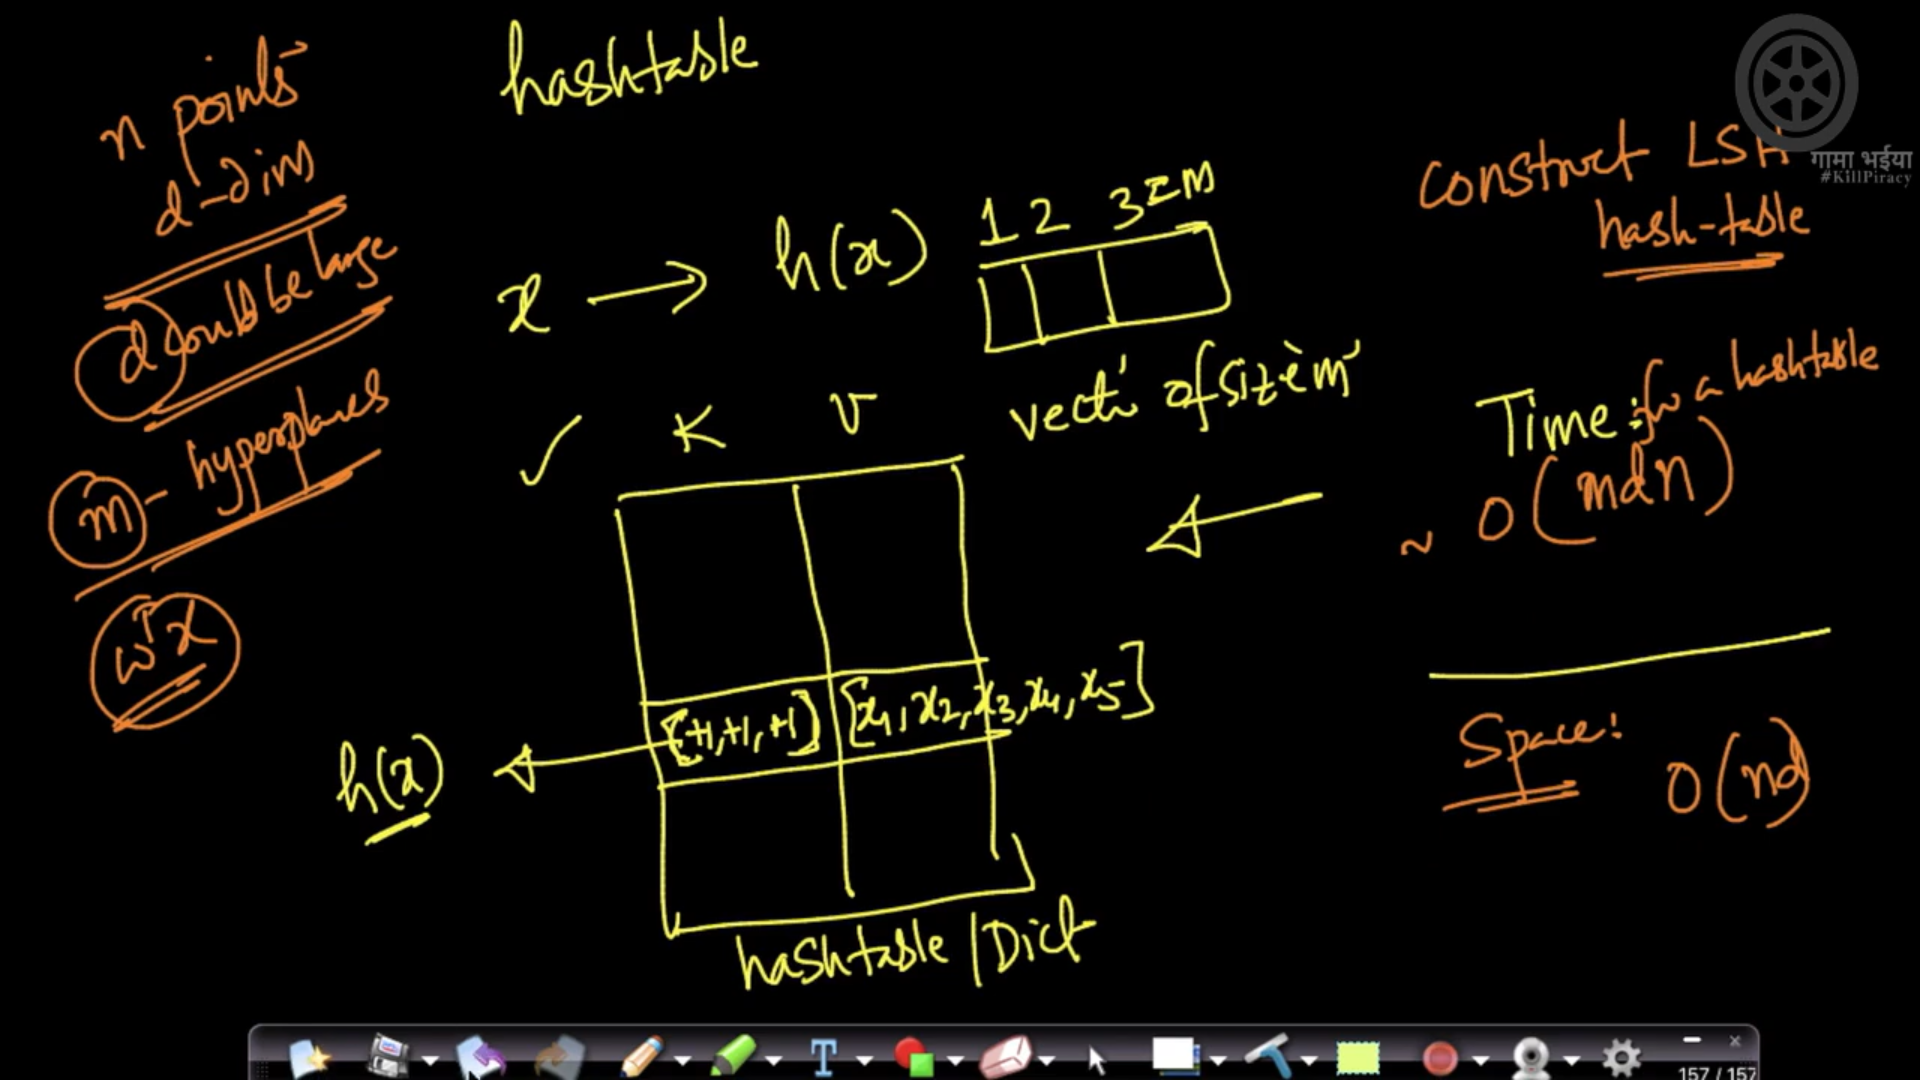 hashtable
n points
d-dims
d could be large
m - hyperplanes
wᵀx
x → h(x)
1 2 3
m
vect of size 'm'
✓ K V
[+1,+1,+1] [x₁,x₂,x₃,x₄,x₅]
h(x)
hashtable/Dict
construct LSH
hash-table
Time: for a hashtable
~ O(mdn)
Space:
O(nd)
गामा भईया
#KillPiracy
T
157 / 157